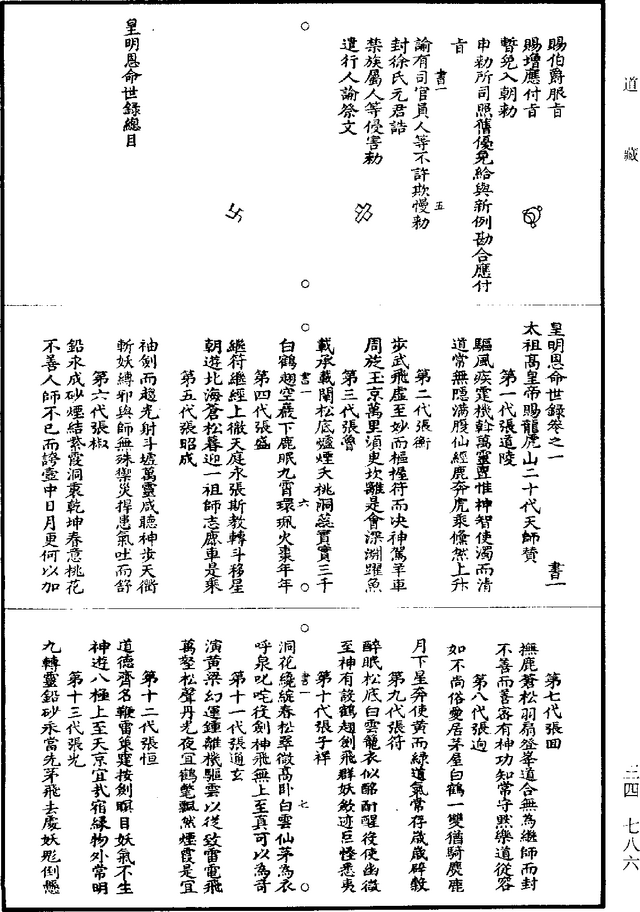 道藏
賜伯爵服旨
賜增應付旨
暫免入朝勑
申勑所司照舊優免給與新例勘合應付
旨
書一 五
諭有司官員人等不許欺慢勑
封徐氏元君誥
禁族屬人等侵害勑
遣行人諭祭文
皇明恩命世錄總目
皇明恩命世錄卷之一 書一
太祖高皇帝賜龍虎山二十代天師贊
第一代張道陵
驅風疾霆機斡萬靈豈惟神智使濁而清
道常無隱滿腹仙經鹿奔虎乘儵然上升
第二代張衡
步武飛虛至妙而樞握符而决神駕羊車
周旋玉京萬里須臾坎離是會深淵躍魚
第三代張魯
載承載闡松底爐煙夭桃洞蕊蕡實三千
書一 六
白鶴翅空巖下鹿眠九霄環珮火棗年年
第四代張盛
繼符繼經上徹天庭永張斯教轉斗移星
朝遊北海蒼松暮迎一祖師志鹿車是乘
第五代張昭成
袖劍而趨光射斗墟萬靈咸聽神步天衢
斬妖縛邪與師無殊禦災捍患氣吐而舒
第六代張椒
鉛永成砂煙結紫霞洞裏乾坤春意桃花
不善人師不已而誇壺中日月更何以加
第七代張回
撫鹿蒼松羽扇瑩峯道合無為繼師而封
不善而善密有神功知常守默樂道從容
第八代張迥
如不尚俗愛居茅屋白鶴一雙猶騎麋鹿
月下星奔使黃而綠道氣常存歲歲辟穀
第九代張符
醉眠松底白雲籠衣似酩酊醒役使幽微
至神有設鶴趐劍飛群妖斂迹巨怪悉夷
第十代張子祥
洞花繞綻春松翠微高卧白雲仙茅為衣
書一 七
呼泉叱咤從劍神飛無上至真可以為奇
第十一代張通玄
演黃粱幻運鍾離機驅雲以從致雷電飛
萬壑松聲丹光夜宜鶴氅飄然煙霞是宜
第十二代張恒
道德齊名鞭雷策霆按劍瞑目妖氣不生
神遊八極上至天京宜哉宿緣物外常明
第十三代張光
九轉靈鉛砂永當先茅飛去處妖形倒懸
三四 七八六